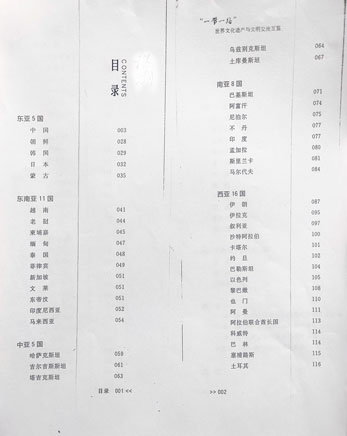 目录
CONTENTS
东亚 5 国
中国 003
朝鲜 028
韩国 029
日本 032
蒙古 035
东南亚 11 国
越南 041
老挝 044
柬埔寨 045
缅甸 047
泰国 048
菲律宾 049
新加坡 051
文莱 051
东帝汶 051
印度尼西亚 052
马来西亚 054
中亚 5 国
哈萨克斯坦 059
吉尔吉斯斯坦 061
塔吉克斯坦 063
目录 001 <<
“一带一路”
世界文化遗产与文明交流互鉴
乌兹别克斯坦 064
土库曼斯坦 067
南亚 8 国
巴基斯坦 071
阿富汗 074
尼泊尔 075
不丹 077
印度 077
孟加拉 080
斯里兰卡 081
马尔代夫 084
西亚 16 国
伊朗 087
伊拉克 095
叙利亚 097
沙特阿拉伯 100
卡塔尔 101
约旦 102
巴勒斯坦 104
以色列 105
黎巴嫩 108
也门 110
阿曼 111
阿拉伯联合酋长国 113
科威特 114
巴林 114
塞浦路斯 115
土耳其 116
>> 002